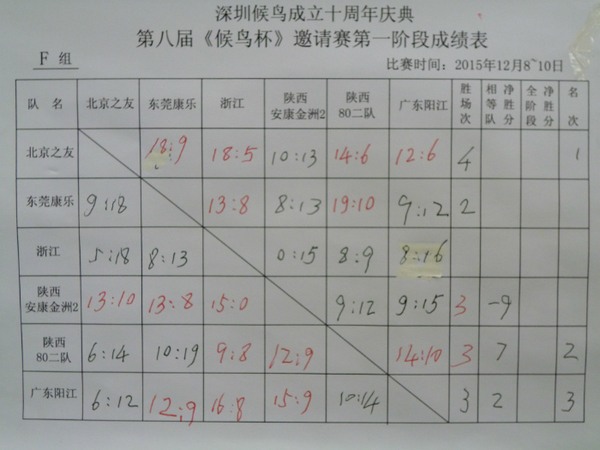 深圳候鸟成立十周年庆典
第八届《候鸟杯》邀请赛第一阶段成绩表
F 组 比赛时间：2015年12月8~10日
队 名 北京之友 东莞康乐 浙江 陕西安康金洲2 陕西80二队 广东阳江 胜场次 相等队 净胜分 全阶段 净胜分 名次
北京之友 18:9 18:5 10:13 14:6 12:6 4 1
东莞康乐 9:18 13:8 8:13 19:10 9:12 2
浙江 5:18 8:13 0:15 8:9 8:16
陕西安康金洲2 13:10 13:8 15:0 9:12 9:15 3 -9
陕西80二队 6:14 10:19 9:8 12:9 14:10 3 7 2
广东阳江 6:12 12:9 16:8 15:9 10:14 3 2 3